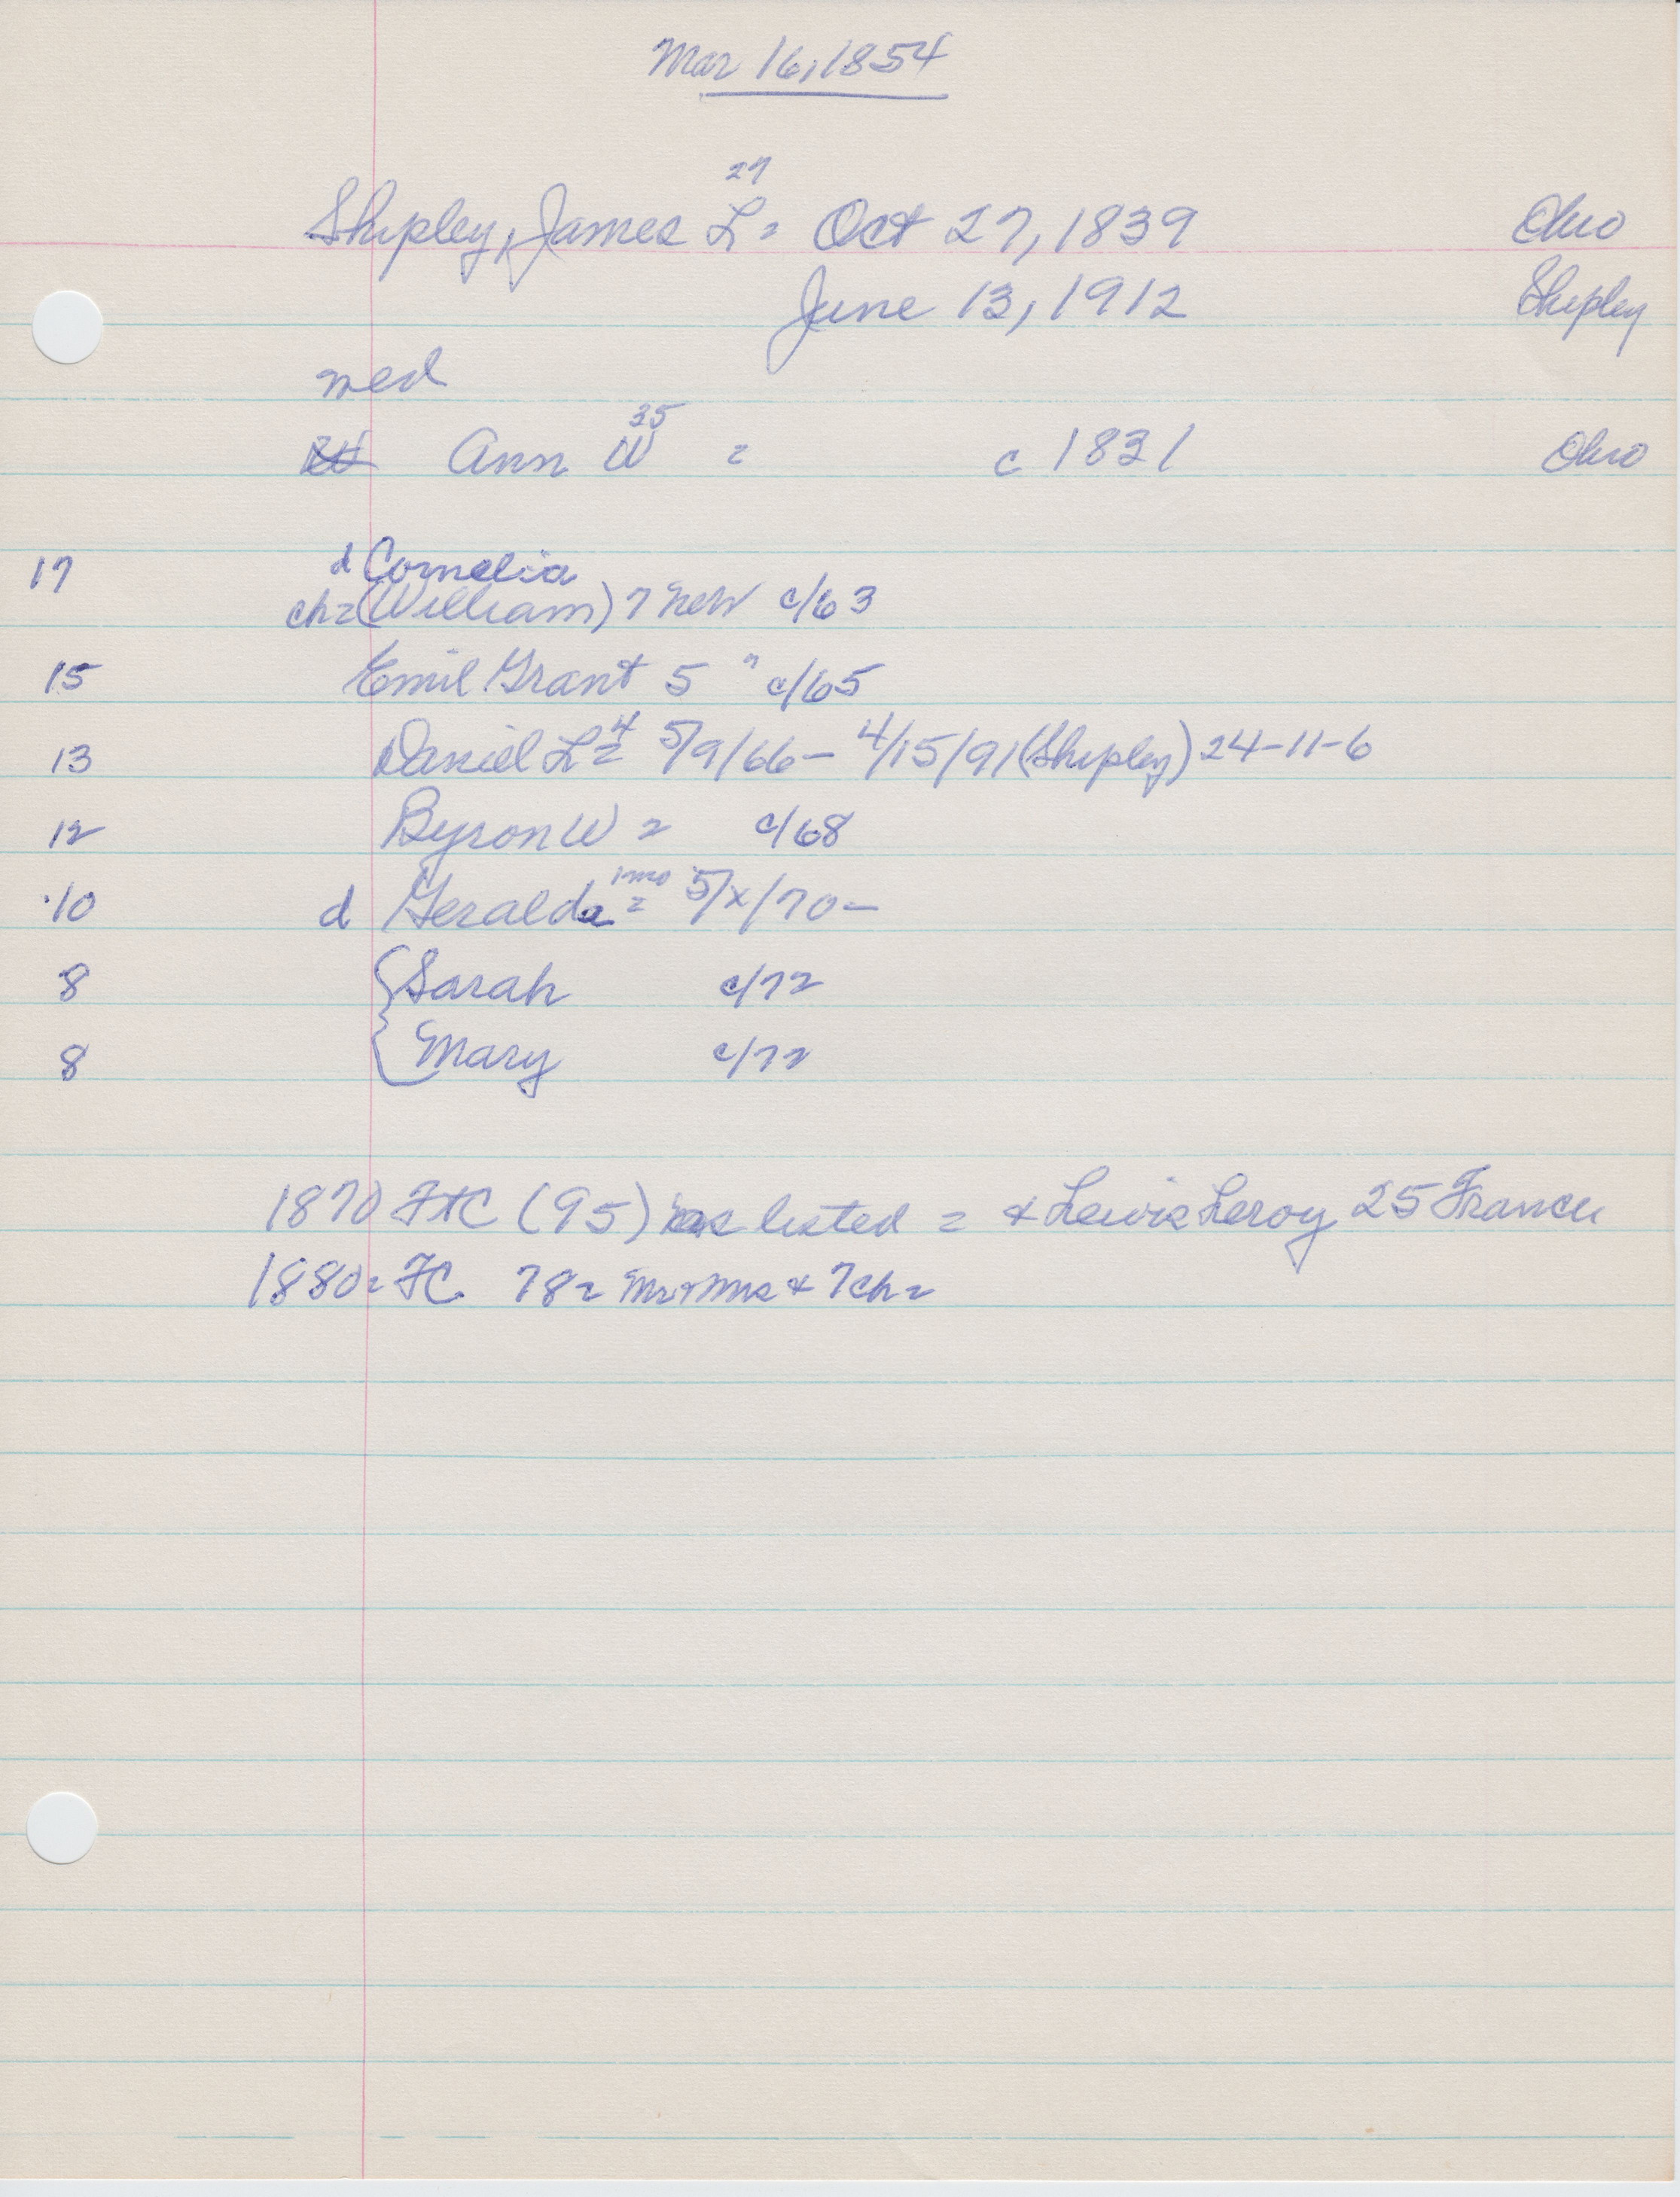 Mar 16, 1854
27
Shipley, James L = Oct 27, 1839 Ohio
June 13, 1912 Shipley
med
35
Ann W = c 1831 Ohio
17 d Cornelia
ch = (William) 7 New c/63
15 Emil Grant 5 " c/65
13 Daniel L = 4 5/9/66 - 4/15/91 (Shipley) 24-11-6
12 Byron W = c/68
10 d Geralda = 1mo 5/x/70 -
8 Sarah c/72
8 Mary c/72
1870 FTC (95) as listed = & Lewis Leroy 25 France
1880 = FC 78 = Mr & Mrs & 7 ch =